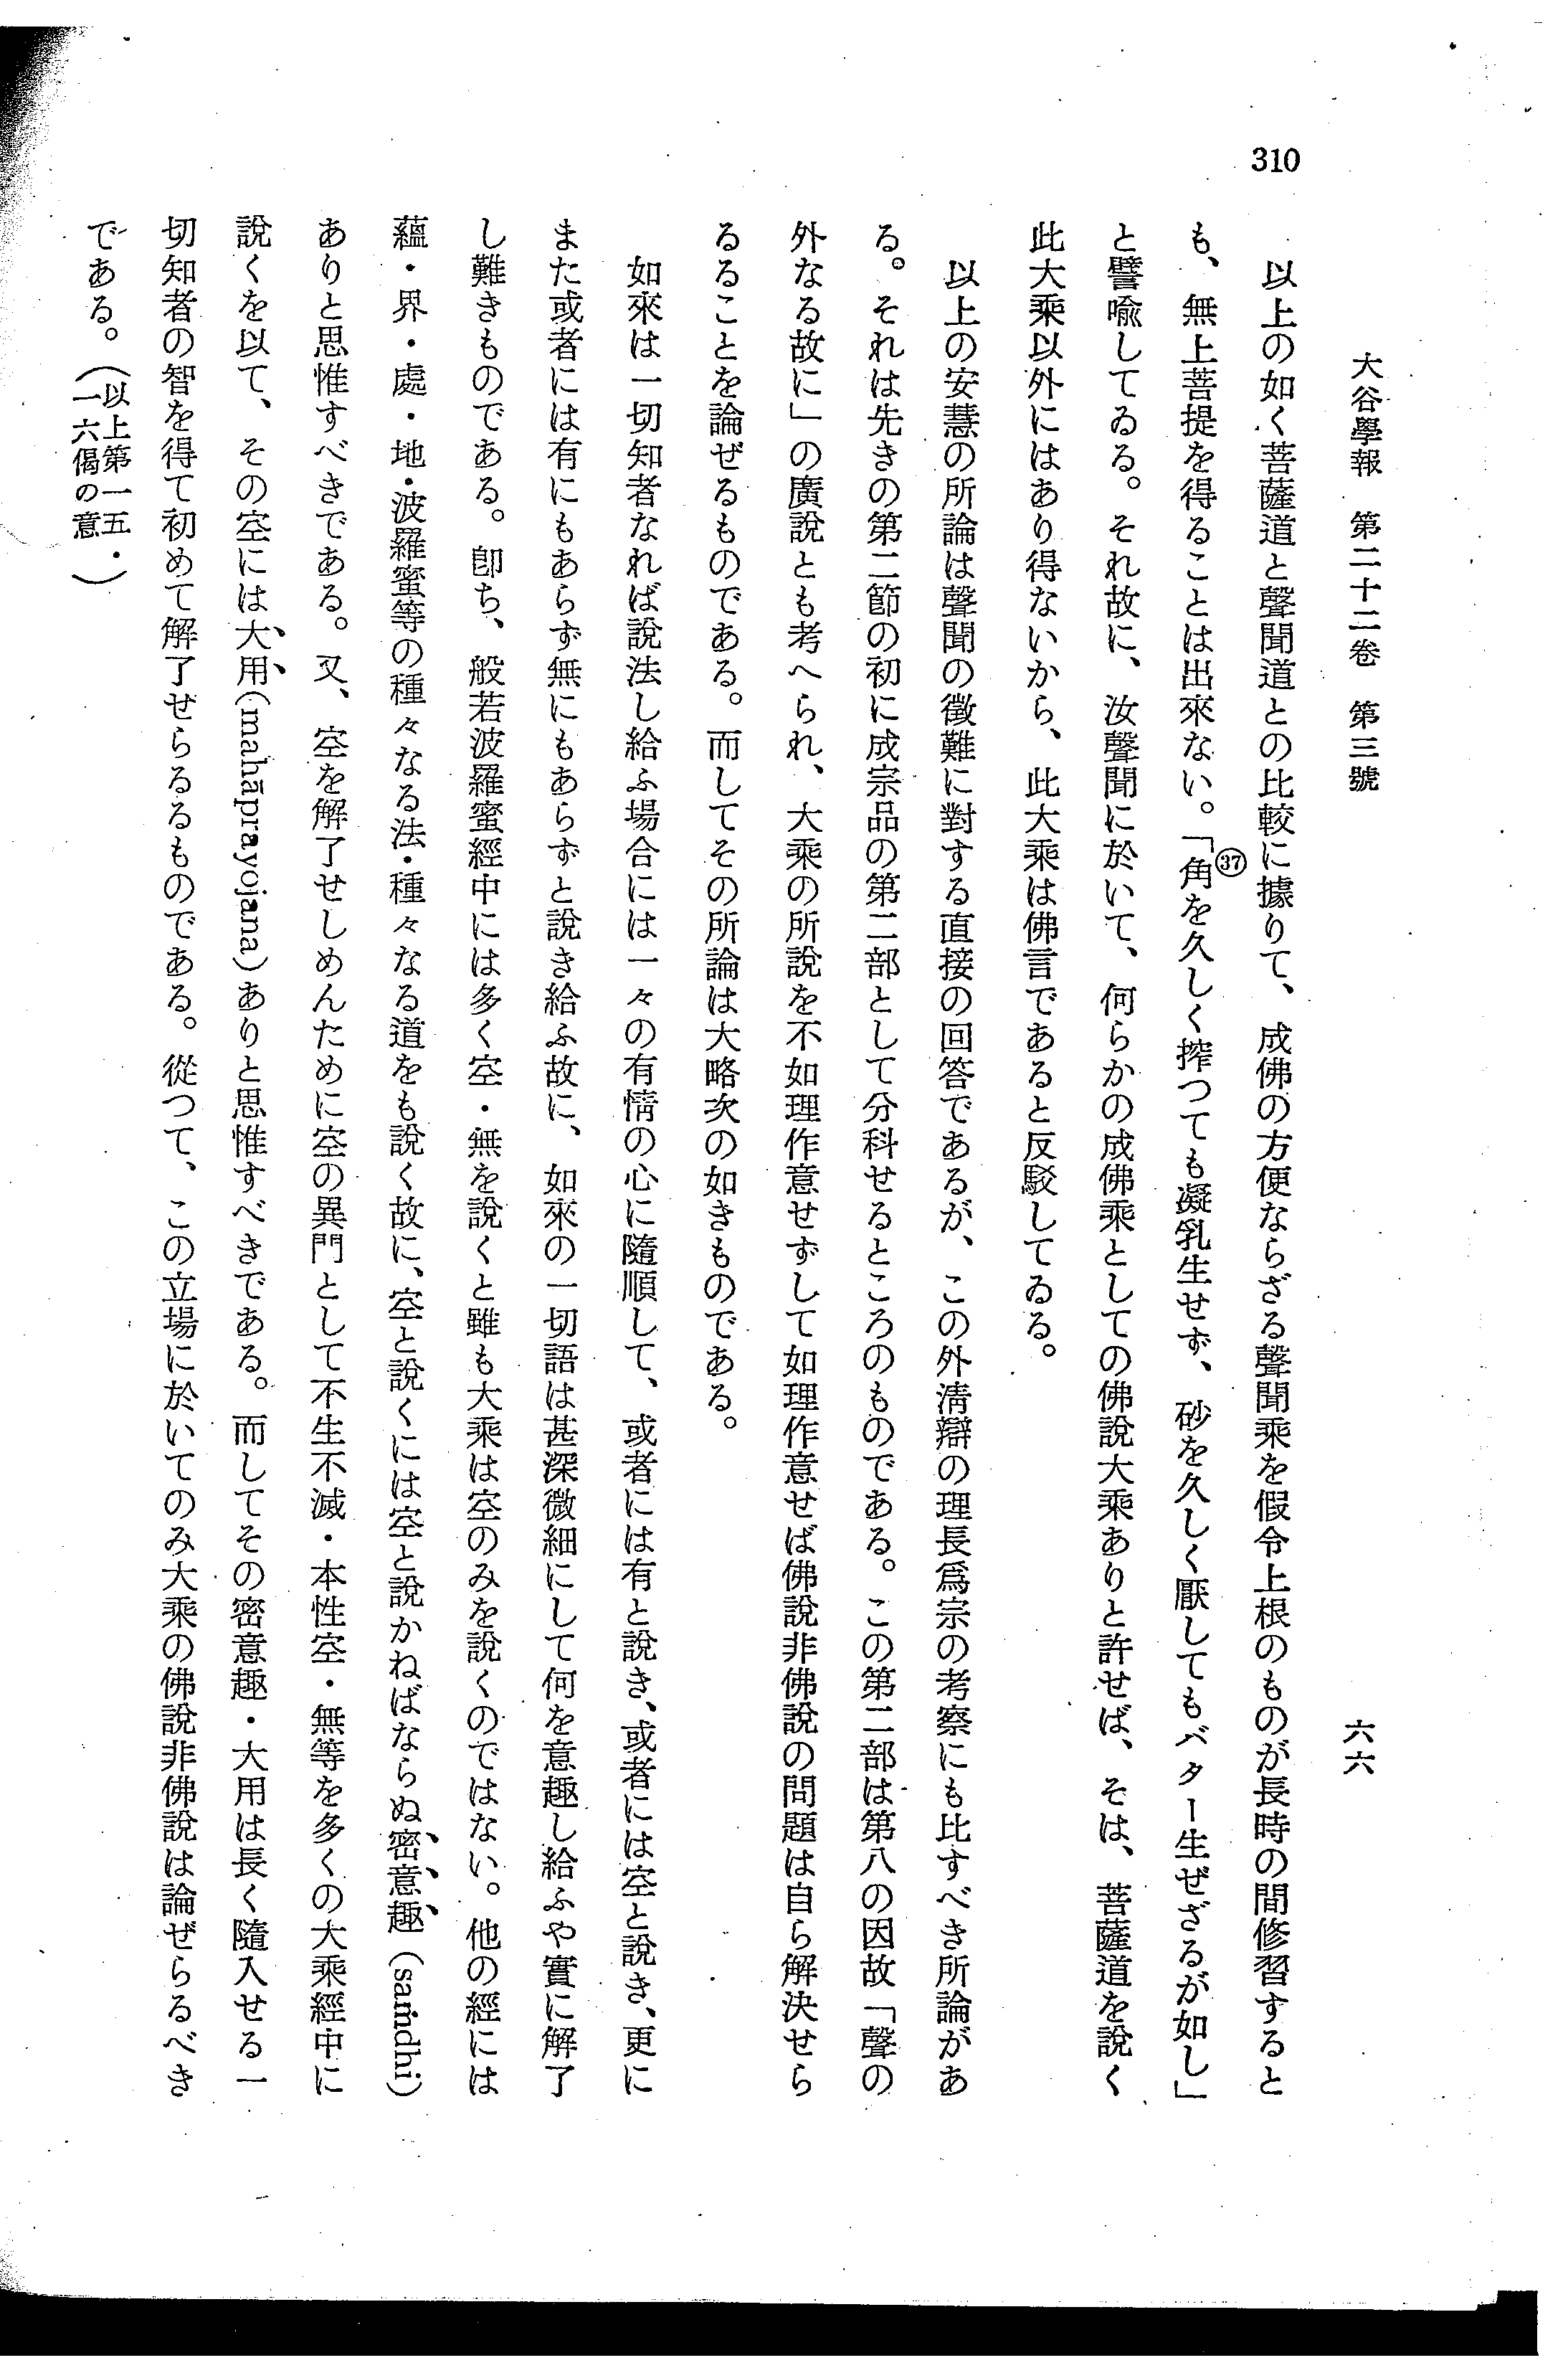 310
大谷學報　第二十二卷　第三號
六六
以上の如く菩薩道と聲聞道との比較に據りて、成佛の方便ならざる聲聞乘を假令上根のものが長時の間修習すると
も、無上菩提を得ることは出來ない。「㊲角を久しく搾つても凝乳生せず、砂を久しく厭してもバター生ぜざるが如し」
と譬喩してゐる。それ故に、汝聲聞に於いて、何らかの成佛乘としての佛說大乘ありと許せば、そは、菩薩道を說く
此大乘以外にはあり得ないから、此大乘は佛言であると反駁してゐる。
以上の安慧の所論は聲聞の徵難に對する直接の回答であるが、この外淸辯の理長爲宗の考察にも比すべき所論があ
る。それは先きの第二節の初に成宗品の第二部として分科せるところのものである。この第二部は第八の因故「聲の
外なる故に」の廣說とも考へられ、大乘の所說を不如理作意せずして如理作意せば佛說非佛說の問題は自ら解決せら
るることを論ぜるものである。而してその所論は大略次の如きものである。
如來は一切知者なれば說法し給ふ場合には一々の有情の心に隨順して、或者には有と說き、或者には空と說き、更に
また或者には有にもあらず無にもあらずと說き給ふ故に、如來の一切語は甚深微細にして何を意趣し給ふや實に解了
し難きものである。卽ち、般若波羅蜜經中には多く空・無を說くと雖も大乘は空のみを說くのではない。他の經には
蘊・界・處・地・波羅蜜等の種々なる法・種々なる道をも說く故に、空と說くには空と說かねばならぬ密意趣（saṁdhi）
ありと思惟すべきである。又、空を解了せしめんために空の異門として不生不滅・本性空・無等を多くの大乘經中に
說くを以て、その空には大用（mahāprayojana）ありと思惟すべきである。而してその密意趣・大用は長く隨入せる一
切知者の智を得て初めて解了せらるるものである。從つて、この立場に於いてのみ大乘の佛說非佛說は論ぜらるべき
である。（以上第一五・
一六偈の意）